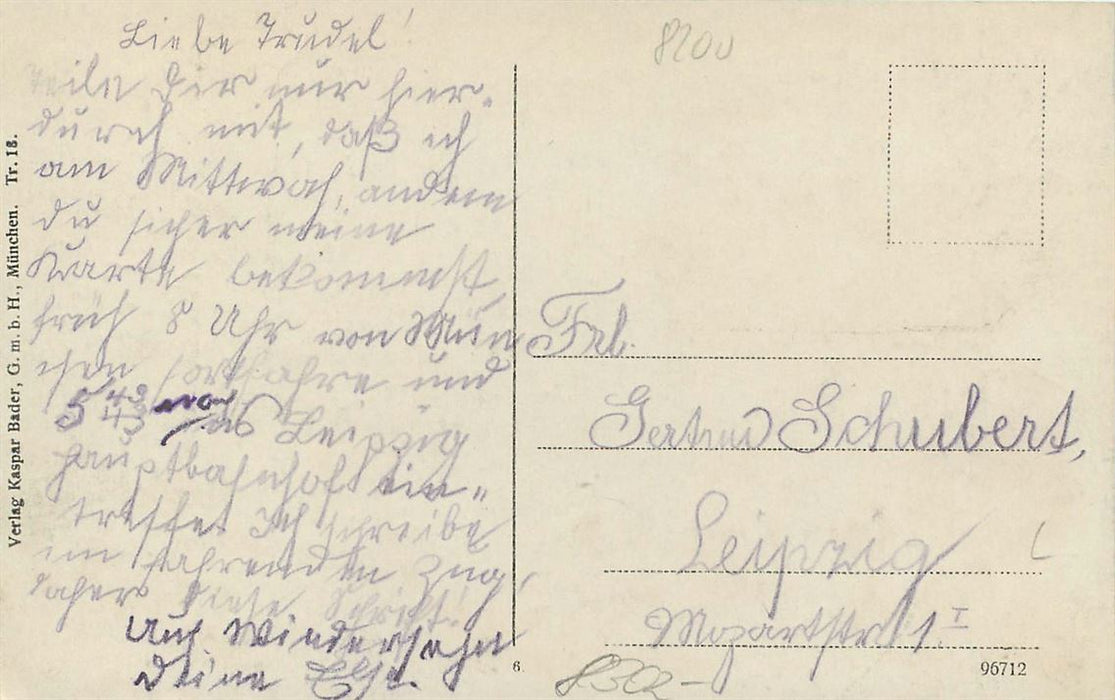 8200
Liebe Trudel!
Teile Dir nur hier-
durch mit, daß ich
am Mittwoch, an dem
du sicher meine
Karte bekommst,
früh 8 Uhr von Mün
chen fortfahre und
5 43 nach
Leipzig
Hauptbahnhof ein-
treffe. Ich schreibe
im fahrenden Zug,
daher diese Schrift!
Auf Wiedersehn
Deine Else.
Frl.
Gertrud Schubert,
Leipzig
Mozartstr. 1 I
Verlag Kaspar Bader, G. m. b. H., München. Tr. 18.
6
96712